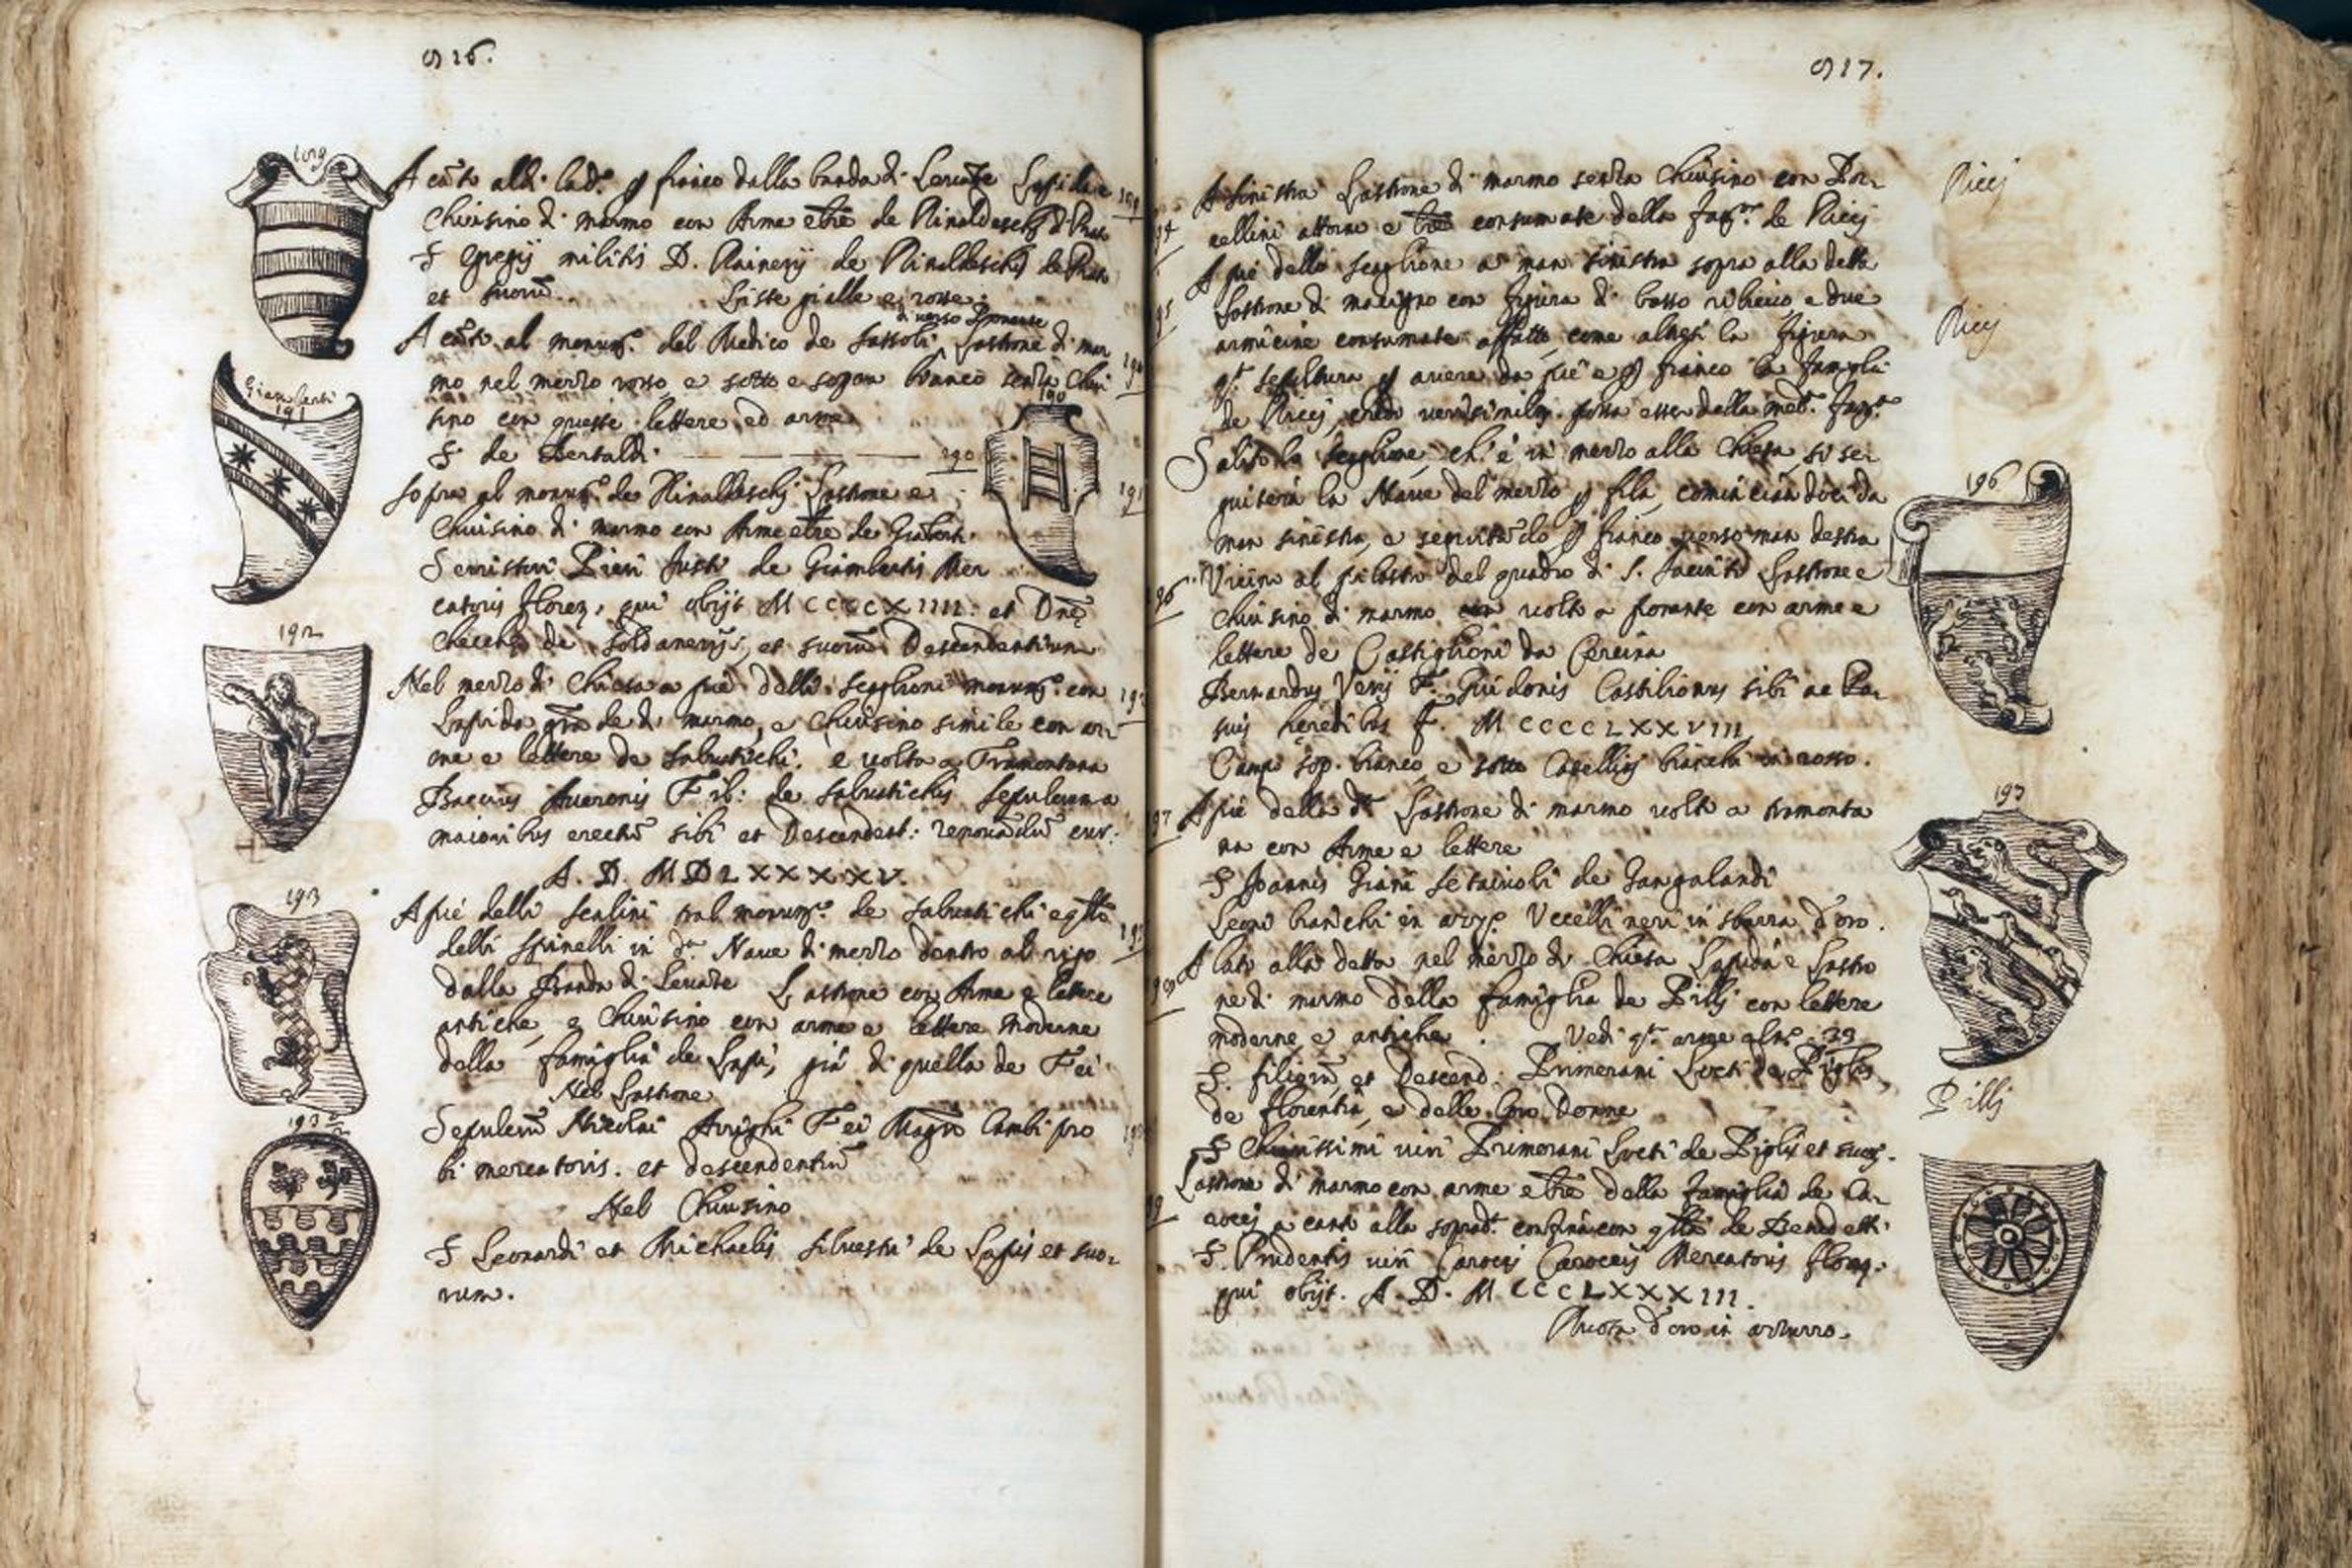 926.
189
A cāto alla lad.ᵃ p fianco dalla banda di Levāte Lapida e 189
Chiusino di marmo con Arme e tre de Rinaldeschi d Prato
S Egregij militis D. Rainerij de Rinaldeschis de Prato
et suorū. Liste gialle e rosse.
A cāto al monum.ᵗᵒ del Medico de Sassoli di verso Ponente Lastrone di mar
mo nel mezzo rosso e sotto e sopra bianco senza Chiu
sino con queste lettere ed arme
S. de Bertaldi. 190
190
Giamberti
191
Sopra al monum.ᵗᵒ de Rinaldeschi Lastrone e 191
Chiusino di marmo con Arme e tre de Giāberti.
Serristori Pieri Justi de Giambertis Mer
catoris Floren. qui obijt MCCCCXIIII. et Dnē
Checche de Soldanerijs, et suorū Descendentium
192
Nel mezzo di Chiesa a piè delli scaglioni monum.ᵗᵒ con
Lapida grāde di marmo, e Chiusino simile con ar-
me e lettere de Salvstichi. è volta a Tramontana
Baccius Averonis Fil: de Salvstichis sepulcrum a
maioribus erectū sibi et Descendent: renovādū cur:
A. D. MDLXXXXV.
193
A piè delli scalini tral monum.ᵗᵒ de Salvstichi e qllo
delli Spinelli in d.ᵃ Nave di mezzo dentro al
dalla Banda di Levāte Lastrone con Arme e lettere
antiche, e Chiusino con arme e lettere moderne
della famiglia de Lapi, già di quella de Fei
Nel Lastrone
193 1/2
Sepulcrū Nicolai Arrighi Fei Magri Cambi pro
bi mercatoris. et descendentiū
Nel Chiusino
S Leonardi et Michaelis Silvestri de Lapis et suo-
rum.
917.
A sinistra Lastrone di marmo senza Chiusino con Por-
cellini attorno e tre consumate della Fag.ᵃ de Ricci
Ricci
A piè dello scaglione a man sinistra sopra alla detta
Lastrone di macigno con figura di basso rilievo e due
armicine consumate affatto come altresì la figura
q.ᵗᵃ sepultura p avere da piè e p fianco la famiglia
de Ricci, credo verisimilm. possa esser della med.ᵃ Fag.ᵃ
Ricci
Salito lo scaglione, ch'è in mezzo alla Chiesa, si se-
guiterà la Nave del mezzo p fila, cominciandoci da
man sinistra, e seguitādo p fianco verso man destra
196
Vicino al pilastro del quadro di S. Jacinto Lastrone e
Chiusino di marmo volto a ponente con arme e
lettere de Castiglioni da Cercina
Bernardus Verij F. Guidonis Castilionus sibi ac Po-
suis heredibus F. MCCCCLXXVIII
Campo sop. bianco, e sotto Cavellini bianchi in rosso.
197
A piè della d.ᵃ Lastrone di marmo volto a tramonta
na con Arme e lettere
S Joannis Giani Setaivoli de Gangalandi
Leoni bianchi in azz.º Uccelli neri in sbarra d'oro.
A lato alla detta nel mezzo di Chiesa Lapida e Lastro
ne di marmo della famiglia de Pilli con lettere
moderne e antiche. Vedi q.ᵗᵃ arme al n.º 39
S. filiorū et Descend. Primerani Locti de Piglis
de Florentia, e delle loro Donne
Pilli
S Chiarissimi viri Primerani Locti de Piglis et suor.
Lastrone di marmo con arme e tre della famiglia de Ca-
rocci a canto alla soprad.ᵃ confina con qllo de Benedetti.
S. Prudentis viri Carocij Carocciis Mercatoris floren.
qui obijt. A. D. MCCCLXXXIII.
Ruota d'oro in azzurro.